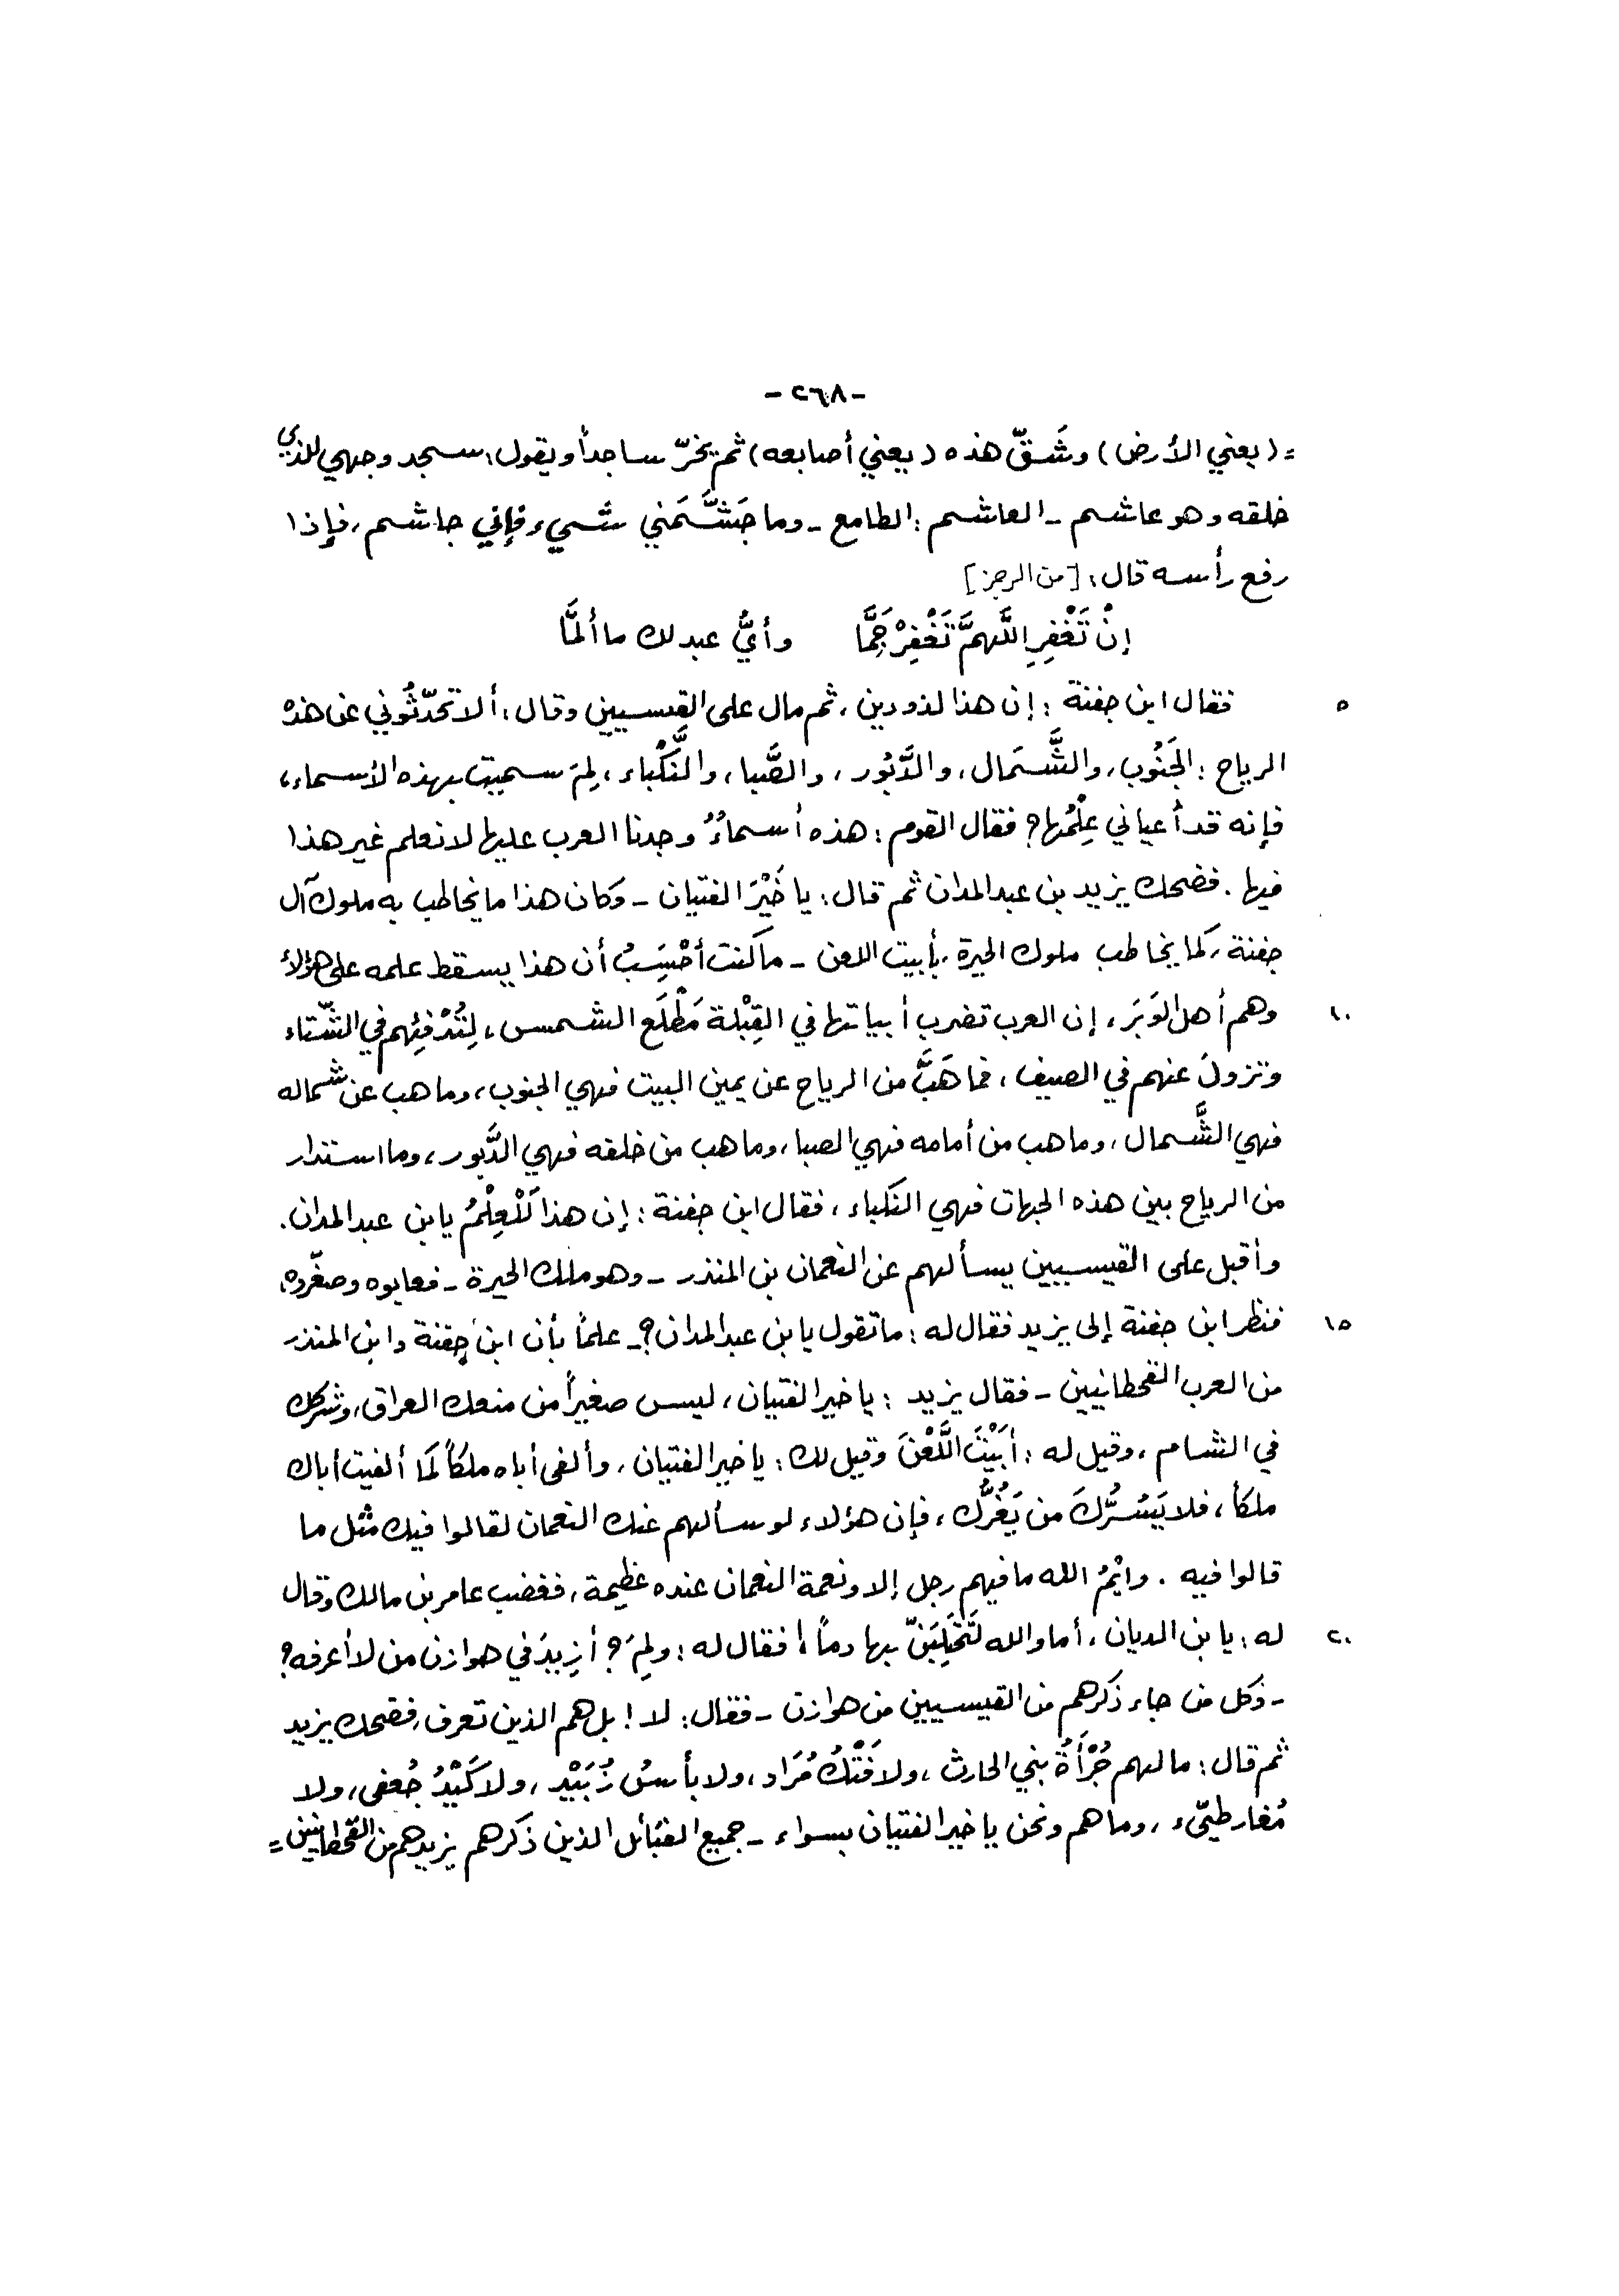 - ٢٦٨ -
= (يعني الأرض) وشَقّ هذه (يعني أصابعه) ثم يخرّ ساجداً ويقول: سجد وجهي للذي
خلقه وهو عاشم - العاشم: الطامع - وما جَشَّمَني شيء فإني جاشم، فإذا
رفع رأسه قال: [من الرجز]
إنْ تَغْفِرِ اللَّهمَّ تَغْفِرْ جَمَّا وأيُّ عبد لك ما ألمَّا
٥ فقال ابن جفنة: إن هذا لذو دين، ثم مال على القيسيين وقال: ألا تحدّثُوني عن هذه
الرياح: الجَنُوب، والشَّمَال، والدَّبُور، والصَّبا، والنَّكْباء، لِمَ سميت بهذه الأسماء،
فإنه قد أعياني عِلْمُها؟ فقال القوم: هذه أسماءٌ وجدنا العرب عليها لا نعلم غير هذا
فيها. فضحك يزيد بن عبد المدان ثم قال: يا خَيْرَ الفتيان - وكان هذا ما يخاطب به ملوك آل
جفنة، كما يخاطب ملوك الحيرة، بأبيت اللعن - ما كنت أحْسَِبُ أن هذا يسقط علمه على هؤلاء
١٠ وهم أهل الوَبَر، إن العرب تضرب أبياتها في القِبْلة مَطْلَع الشمس، لِتُدْفِئهم في الشّتاء
وتزولَ عنهم في الصيف، فما هَبَّ من الرياح عن يمين البيت فهي الجنوب، وما هب عن شماله
فهي الشَّمال، وما هب من أمامه فهي الصبا، وما هب من خلفه فهي الدَّبور، وما استدار
من الرياح بين هذه الجهات فهي النكباء، فقال ابن جفنة: إن هذا لَلْعِلْمُ يابن عبد المدان.
وأقبل على القيسيين يسألهم عن النعمان بن المنذر - وهو ملك الحيرة - فعابوه وصغّروه،
١٥ فنظر ابن جفنة إلى يزيد فقال له: ما تقول يابن عبد المدان؟ - علماً بأن ابن جفنة وابن المنذر
من العرب القحطانيين - فقال يزيد: يا خير الفتيان، ليس صغيراً من منعك العراق، وشركك
في الشام، وقيل له: أبَيْتَ اللَّعْنَ وقيل لك: يا خير الفتيان، وألفى أباه ملكاً كما ألفيت أباك
ملكاً، فلا يَسُرُّكَ من يَغُرُّك، فإن هؤلاء لو سألهم عنك النعمان لقالوا فيك مثل ما
قالوا فيه. وايْمُ الله ما فيهم رجل إلا ونعمة النعمان عنده عظيمة، فغضب عامر بن مالك وقال
٢٠ له: يابن الديان، أما والله لَتَحْلِبَنّ بها دماً، فقال له: ولِمَ؟ أزِيدَ في هوازن من لا أعرفه؟
- وكل من جاء ذكرهم من القيسيين من هوازن - فقال: لا! بل هم الذين تعرف، فضحك يزيد
ثم قال: ما لهم جُرْأَةُ بني الحارث، ولا فَتْكُ مُرَاد، ولا بأسُ زُبَيْد، ولا كَيْدُ جُعفى، ولا
مُغار طيّء، وما هم ونحن يا خير الفتيان بسواء - جميع القبائل الذين ذكرهم يزيد هم من القحطانيين =